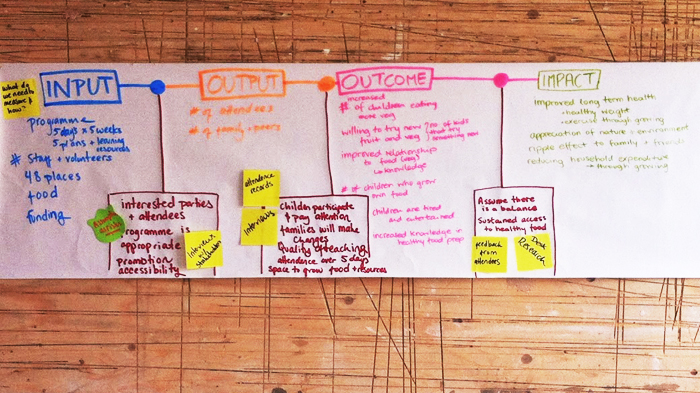 what do
we need to
measure &
how?
INPUT
programme
5 days x 5 weeks
5 plans + learning
resources
# staff + volunteers
48 places
food
funding
interested parties
+ attendees
programme is
appropriate
promotion
accessibility
Interviews
w/
stakeholders
OUTPUT
# of attendees
# of family + peers
attendence
records
Interviews
Children participate
& pay attention
families will make
changes
Quality of teaching
attendence over 5 days
space to grow food + resources
OUTCOME
increased
# of children eating
more veg
willing to try new
fruit and veg
% of kids
that try
something new
improved relationships
to food (veg)
knowledge
# of children who grow
own food
children are tired
and entertained
increased knowledge +
healthy food prep
Assume there
is a balance
Sustained access
to healthy food
feedback
from
attendees
Desk
Research
IMPACT
improved long term health
+ healthy weight
+ exercise through growing
appreciation of nature + environment
ripple effect to family + friends
reducing household expenditure
through growing